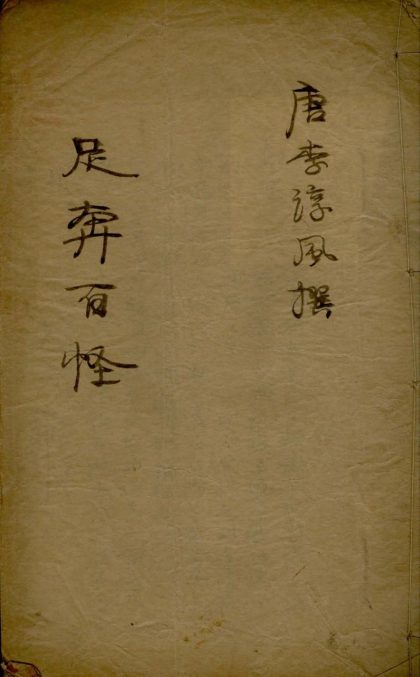 唐李淳風撰
足奔百怪